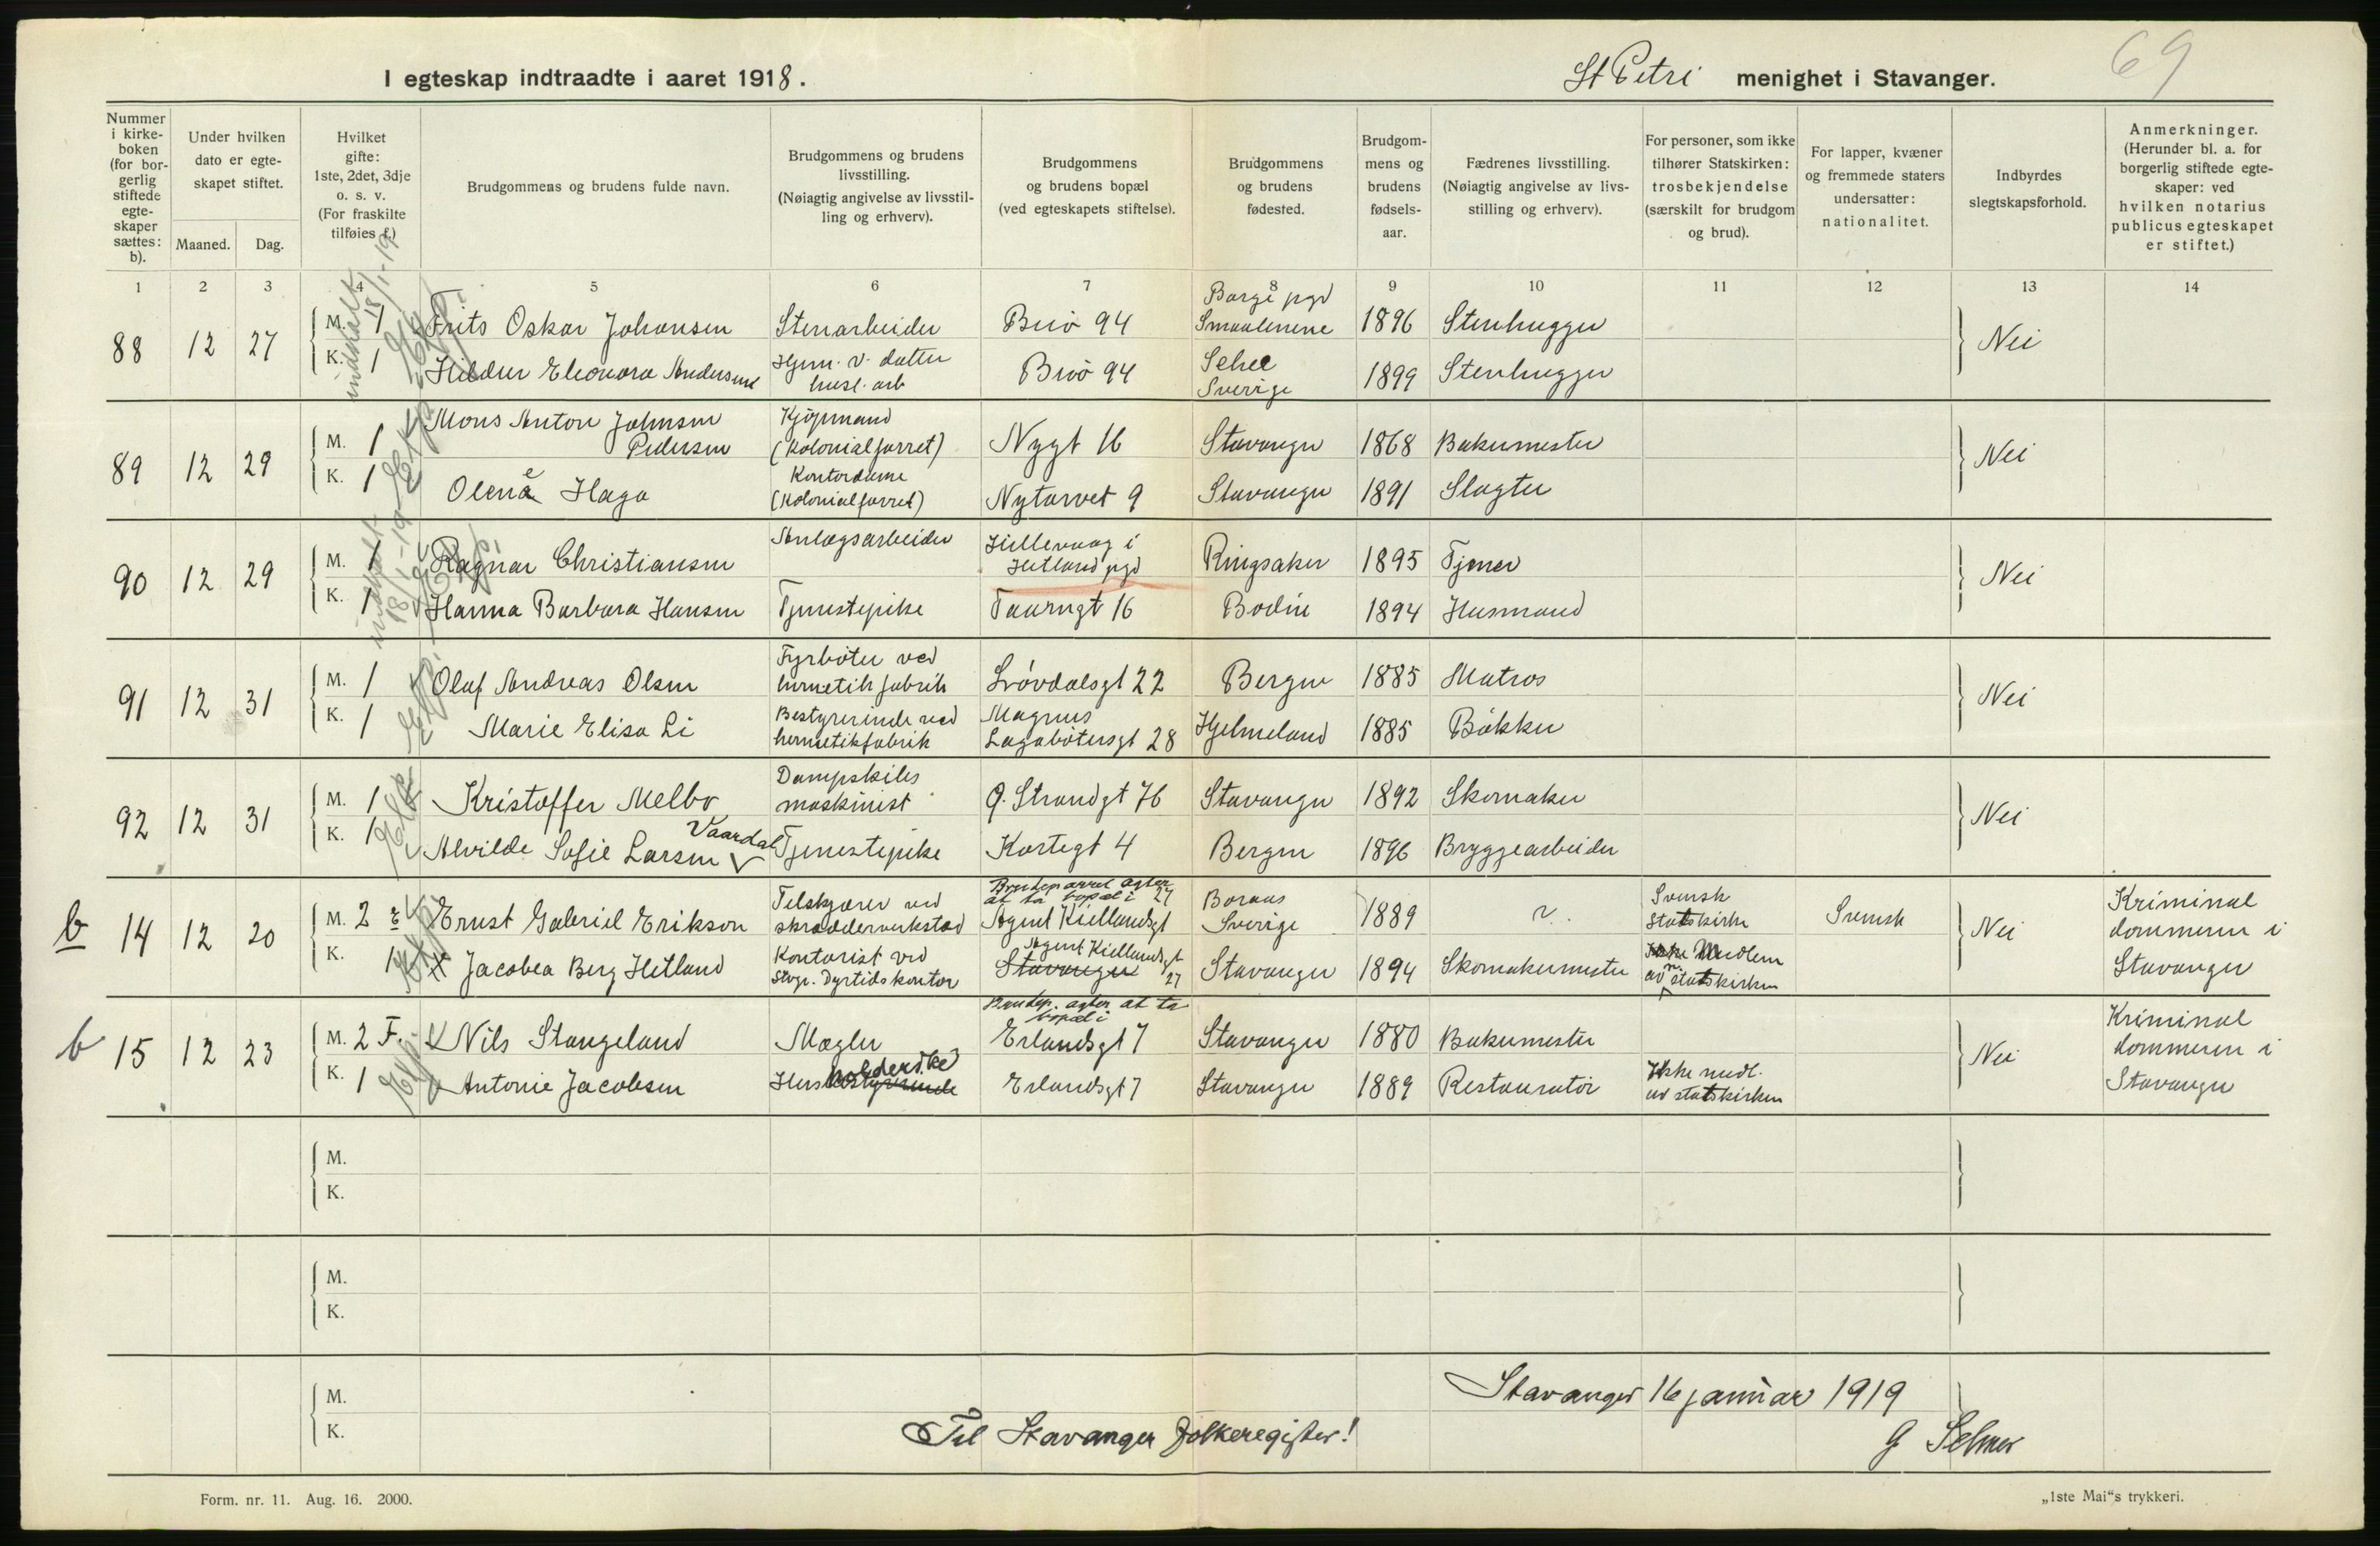 I egteskap indtraadte i aaret 1918.
St Petri menighet i Stavanger.
69
Nummer i kirke-boken (for bor-gerlig stiftede egte-skaper sættes: b).
Under hvilken dato er egte-skapet stiftet.
Maaned. Dag.
Hvilket gifte: 1ste, 2det, 3dje o. s. v. (For fraskilte tilføies f.)
Brudgommens og brudens fulde navn.
Brudgommens og brudens livsstilling. (Nøiagtig angivelse av livsstil-ling og erhverv).
Brudgommens og brudens bopæl (ved egteskapets stiftelse).
Brudgommens og brudens fødested.
Brudgom-mens og brudens fødsels-aar.
Fædrenes livsstilling. (Nøiagtig angivelse av livs-stilling og erhverv).
For personer, som ikke tilhører Statskirken: trosbekjendelse (særskilt for brudgom og brud).
For lapper, kvæner og fremmede staters undersatter: nationalitet.
Indbyrdes slegtskapsforhold.
Anmerkninger. (Herunder bl. a. for borgerlig stiftede egte-skaper: ved hvilken notarius publicus egteskapet er stiftet.)
1 2 3 4 5 6 7 8 9 10 11 12 13 14
88 12 27 M. 1 Frits Oskar Johansen Stenarbeider Buø 94 Borge pgd Smaalenene 1896 Stenhugger Nei
K. 1 Hildur Eleonora Andersen Hjem. v. datter husl. arb Buø 94 Sverige 1899 Stenhugger
indkaldt 18/1-19
89 12 29 M. 1 Mons Anton Johnsen Pedersen Kjøpmand (Kolonialforret) Nygt 16 Stavanger 1868 Bakermester Nei
K. 1 Olene Haga Kontordame (Kolonialforret) Nytorvet 9 Stavanger 1891 Slagter
90 12 29 M. 1 Ragnar Christiansen Anlægsarbeider Hillevaag i Hetland pgd Ringsaker 1895 Tjener Nei
K. 1 Hanna Barbara Hansen Tjenestepike Taarngt 16 Bodin 1894 Husmand
indkaldt 18/1-19
91 12 31 M. 1 Olaf Andreas Olsen Fyrbøter ved hermetikfabrik Løvdalsgt 22 Bergen 1885 Matros Nei
K. 1 Marie Elisa Li Bestyrerinde ved hermetikfabrik Magnus Lagabøtersgt 28 Hjelmeland 1885 Bøkker
92 12 31 M. 1 Kristoffer Melbo Dampskibs maskinist Ø. Strandgt 76 Stavanger 1892 Skomaker Nei
K. 1 Alvilde Sofie Larsen Vaardal Tjenestepike Kortegt 4 Bergen 1896 Bryggearbeider
b 14 12 20 M. 2 Ernst Gabriel Erikson Tilskjærer ved skrædderverkstad Brudeparret agter at ta bopæl i Agent Kiellandsgt 27 Boraas Sverige 1889 ?. Svensk Statskirke Svensk Nei Kriminal dommeren i Stavanger
K. 1 Jacobea Berg Hetland Kontorist ved Stvgr. Dyrtidskontor Stavanger Agent Kiellandsgt 27 Stavanger 1894 Skomakermester Ikke Medlem av statskirken
b 15 12 23 M. 2 F. Nils Stangeland Mægler Brudep. agter at ta bopæl i Erlandsgt 7 Stavanger 1880 Bakermester Nei Kriminal dommeren i Stavanger
K. 1 Antonie Jacobsen Husbestyrerinde holderske Erlandsgt 7 Stavanger 1889 Restauratør Ikke medl. av statskirken
M.
K.
M.
K.
M.
K.
Stavanger 16 januar 1919
Til Stavanger Folkeregister!
G Selmer
Form. nr. 11. Aug. 16. 2000.
„1ste Mai“s trykkeri.